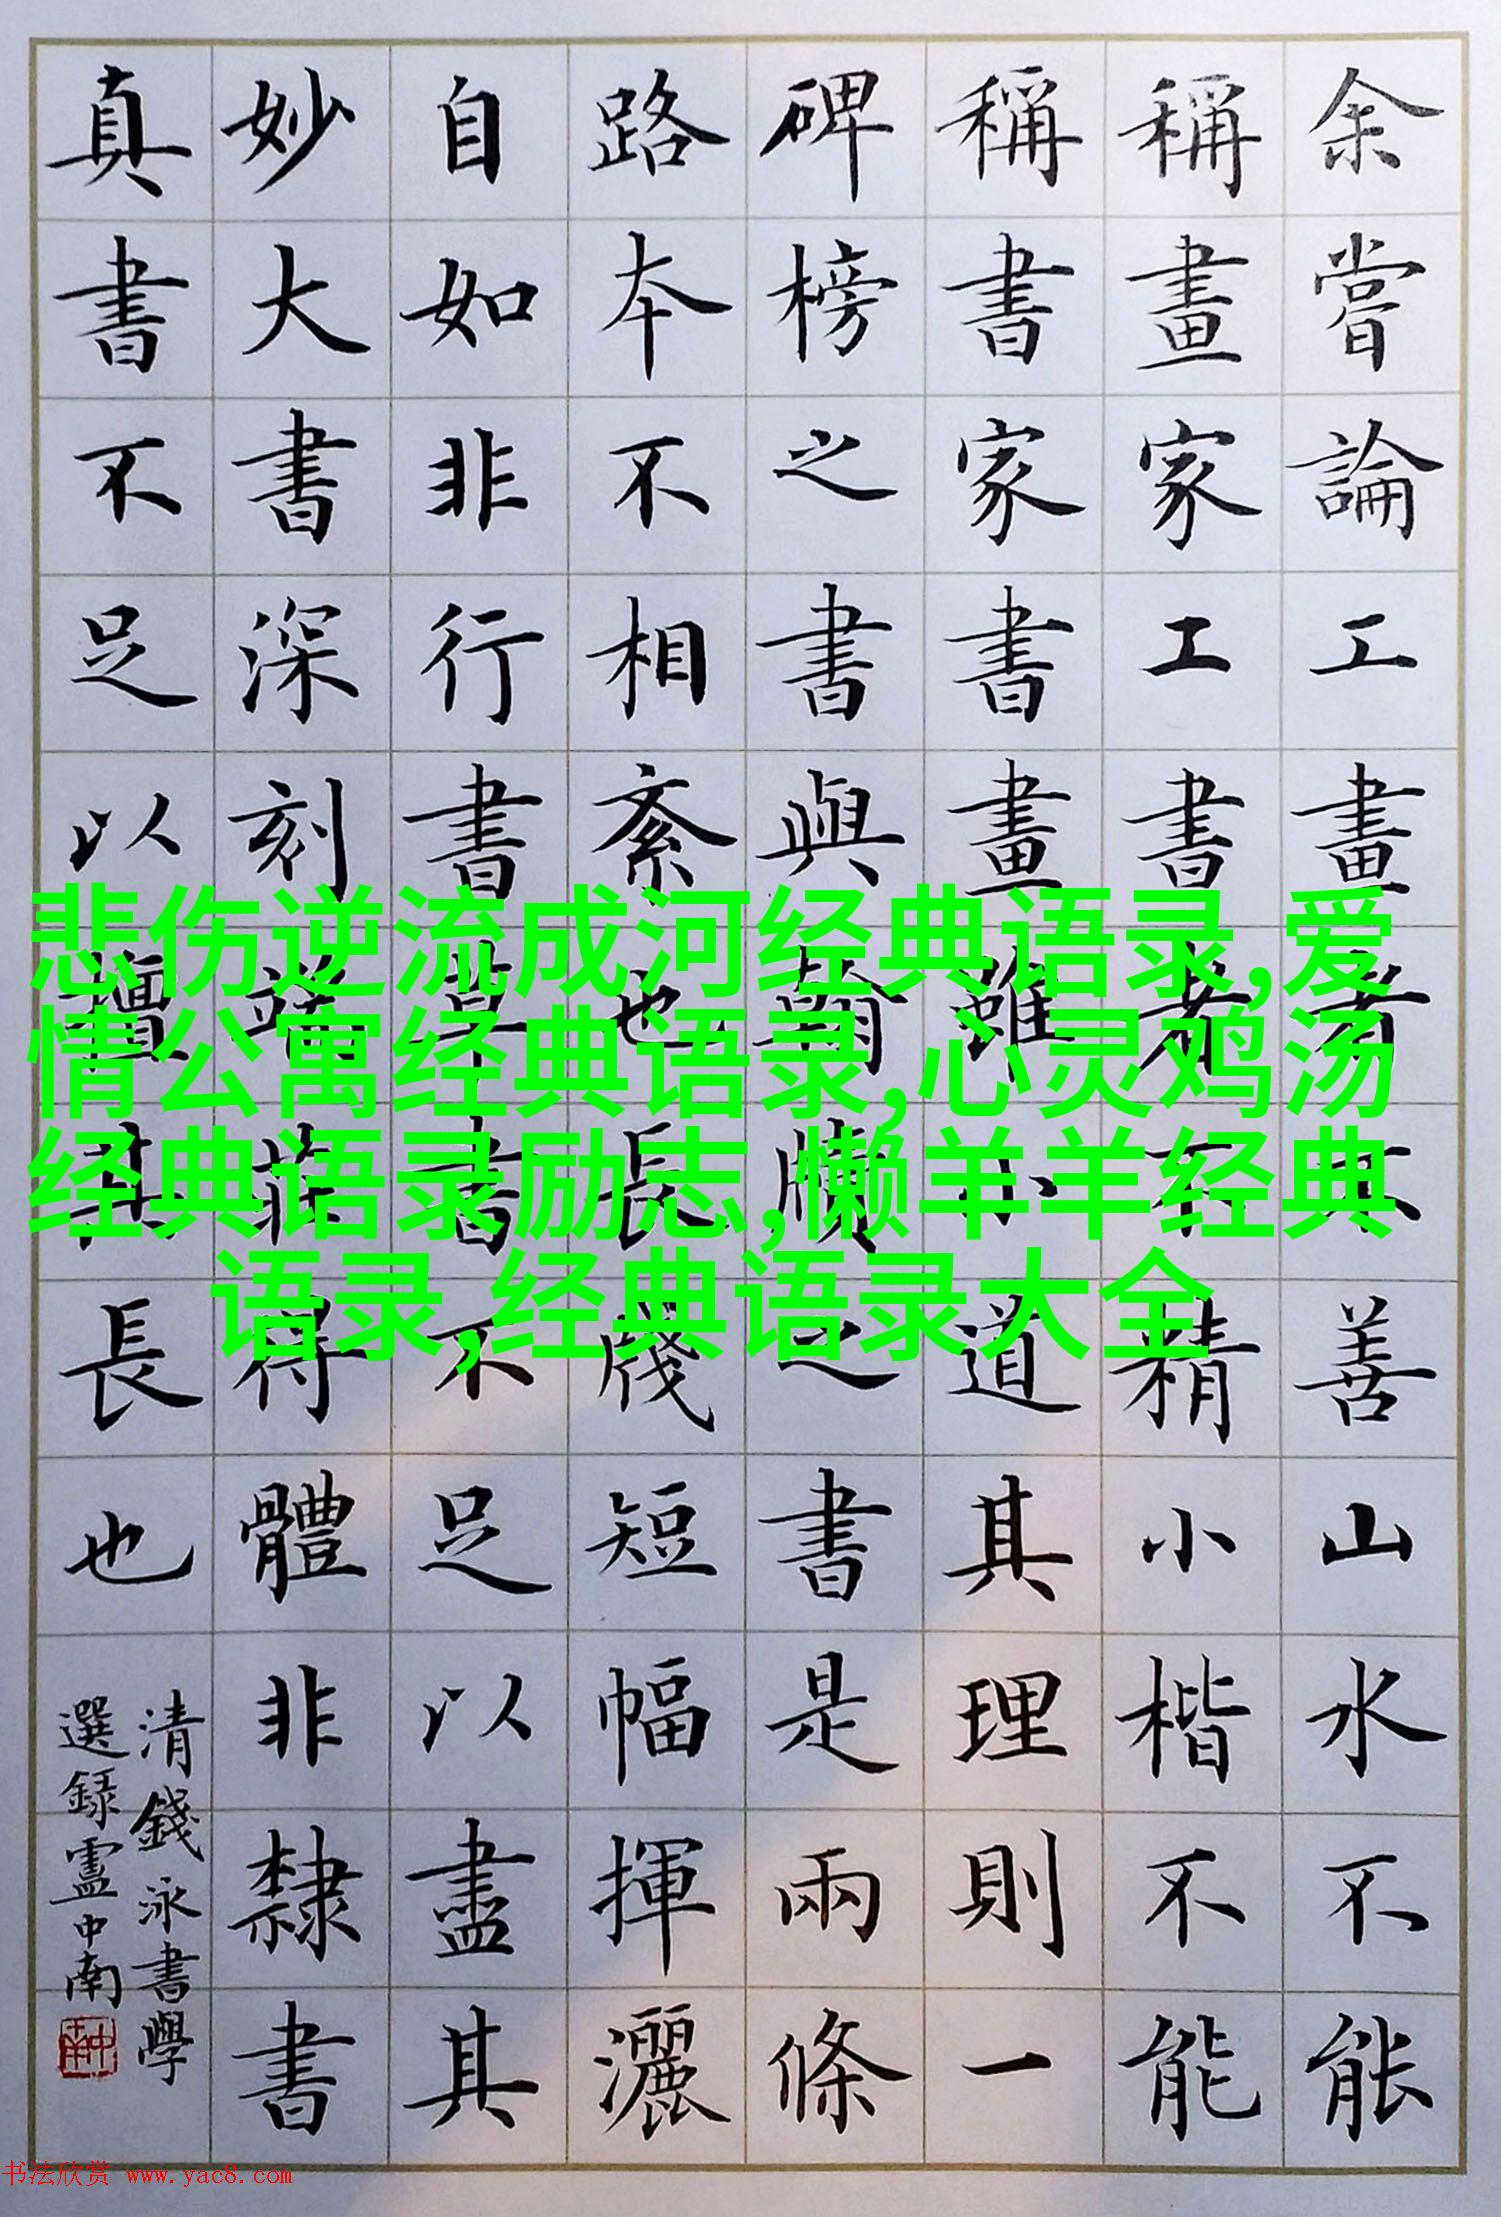 余嘗論工畫者不善山水不能
稱畫家工書者不精小楷不能
稱書家書畫雖小道其理則一
碑榜之書與翰牘之書是兩條
路本不相紊也長牋短幅揮灑
自如非行書草書不足以盡其
妙大書深刻端莊得體非隸書
真書不足以擅其長也
清錢泳書學
選録盧中南
悲伤逆流成河经典语录,爱
情公寓经典语录,心灵鸡汤
经典语录励志,懒羊羊经典
语录,经典语录大全
书法欣赏 www.yac8.com